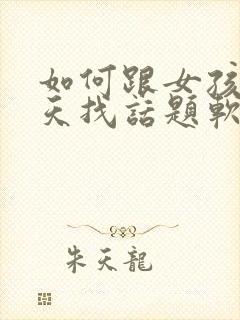 如何跟女孩
天找話題軟
朱天龍